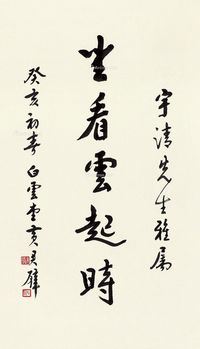 宇清先生雅屬
坐看雲起時
癸亥初春白雲堂黃君璧